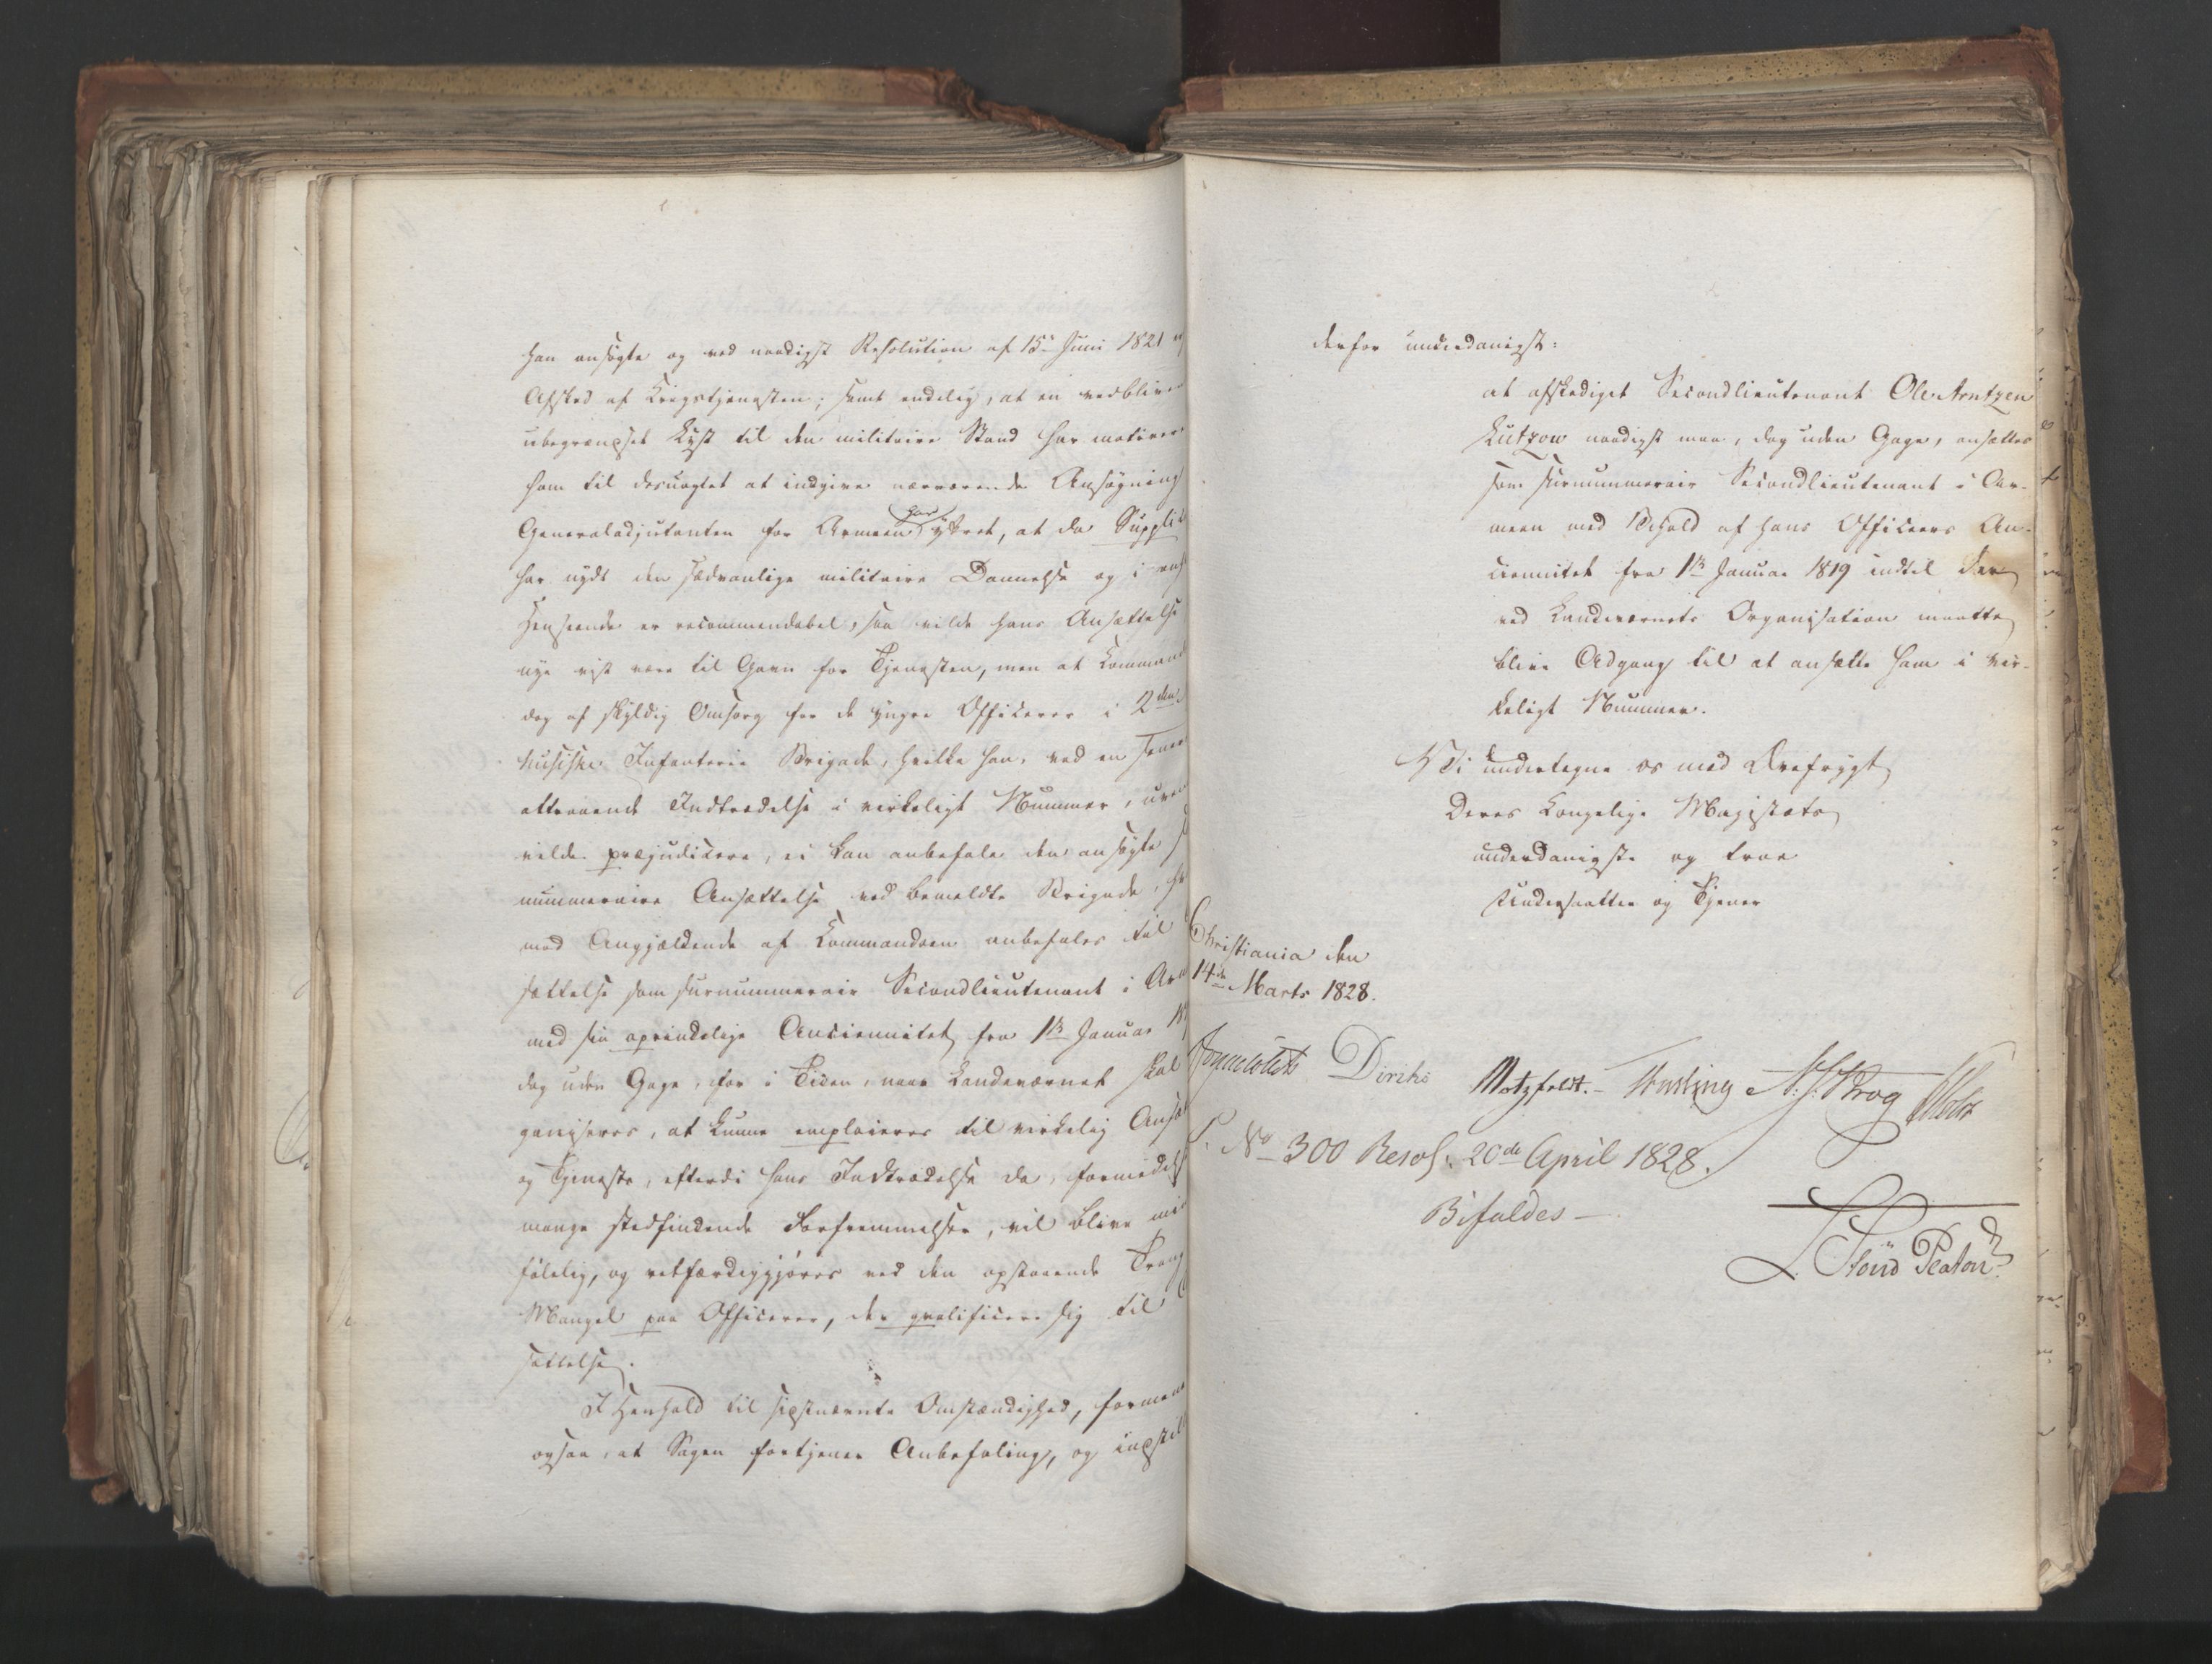 han ansøgte og ved naadigst Resolution af 15de Juni 1821
Afsked af Krigstjenesten; samt endelig, at en vedbliven
ubegrændset Lyst til den militaire Stand har motivere
ham til desuagtet at indgive nærværende Ansøgning
Generaladjutanten for Armeen har yttret, at da Suppli
har nydt den sædvanlige militaire Dannelse og i
Henseende er recommendabel, saa vilde hans Ansættelse
nye vist være til Gavn for Tjenesten, men at Command
dog af skyldig Omsorg for de yngre Officerer i 2den
husiske Infanterie Brigade, hvilke han, ved en
attraaende Indtrædelse i virkeligt Nummer,
vilde præjudicere, ei kan anbefale den ansøgte
nummeraire Ansættelse ved bemeldte Brigade,
mod Angjældende af Commandoen anbefales til
sættelse som surnummerair Secondlieutenant i Ar
med sin oprindelige Anciennitet fra 1ste Januar 18
dog uden Gage, for i Tiden, naar Landeværnet skal
ganiseres, at kunne emploieres til virkelig Ansæ
og Tjeneste, efterdi hans Indtrædelse da, formedelst
mange stedfindende Forfremmelser, vil blive mi
følelig, og retfærdiggjøres ved den opstaaende Trang
Mangel paa Officerer, der qvalificere sig til
sættelse.
I Henhold til sidstnævnte Omstændighed, formene
ogsaa, at Sagen fortjener Anbefaling, og indstil
derfor underdanigst:
at afskediget Secondlieutenant Ole Arntzen
Lützow naadigst maa, dog uden Gage, ansættes
som surnummerair Secondlieutenant i Ar-
meen med Behold af hans Officeers An-
ciennitet fra 1ste Januar 1819 indtil der
ved Landeværnets Organisation maatte
blive Adgang til at ansætte ham i vir-
keligt Nummer.
Vi undertegne os med Ærefrygt
Deres Kongelige Majestæts
underdanigste og troe
Undersaatter og Tjener
Christiania den
14de Marts 1828.
Diriks Motzfeldt. Fasting
No 300 Resol: 20de April 1828.
Bifaldes